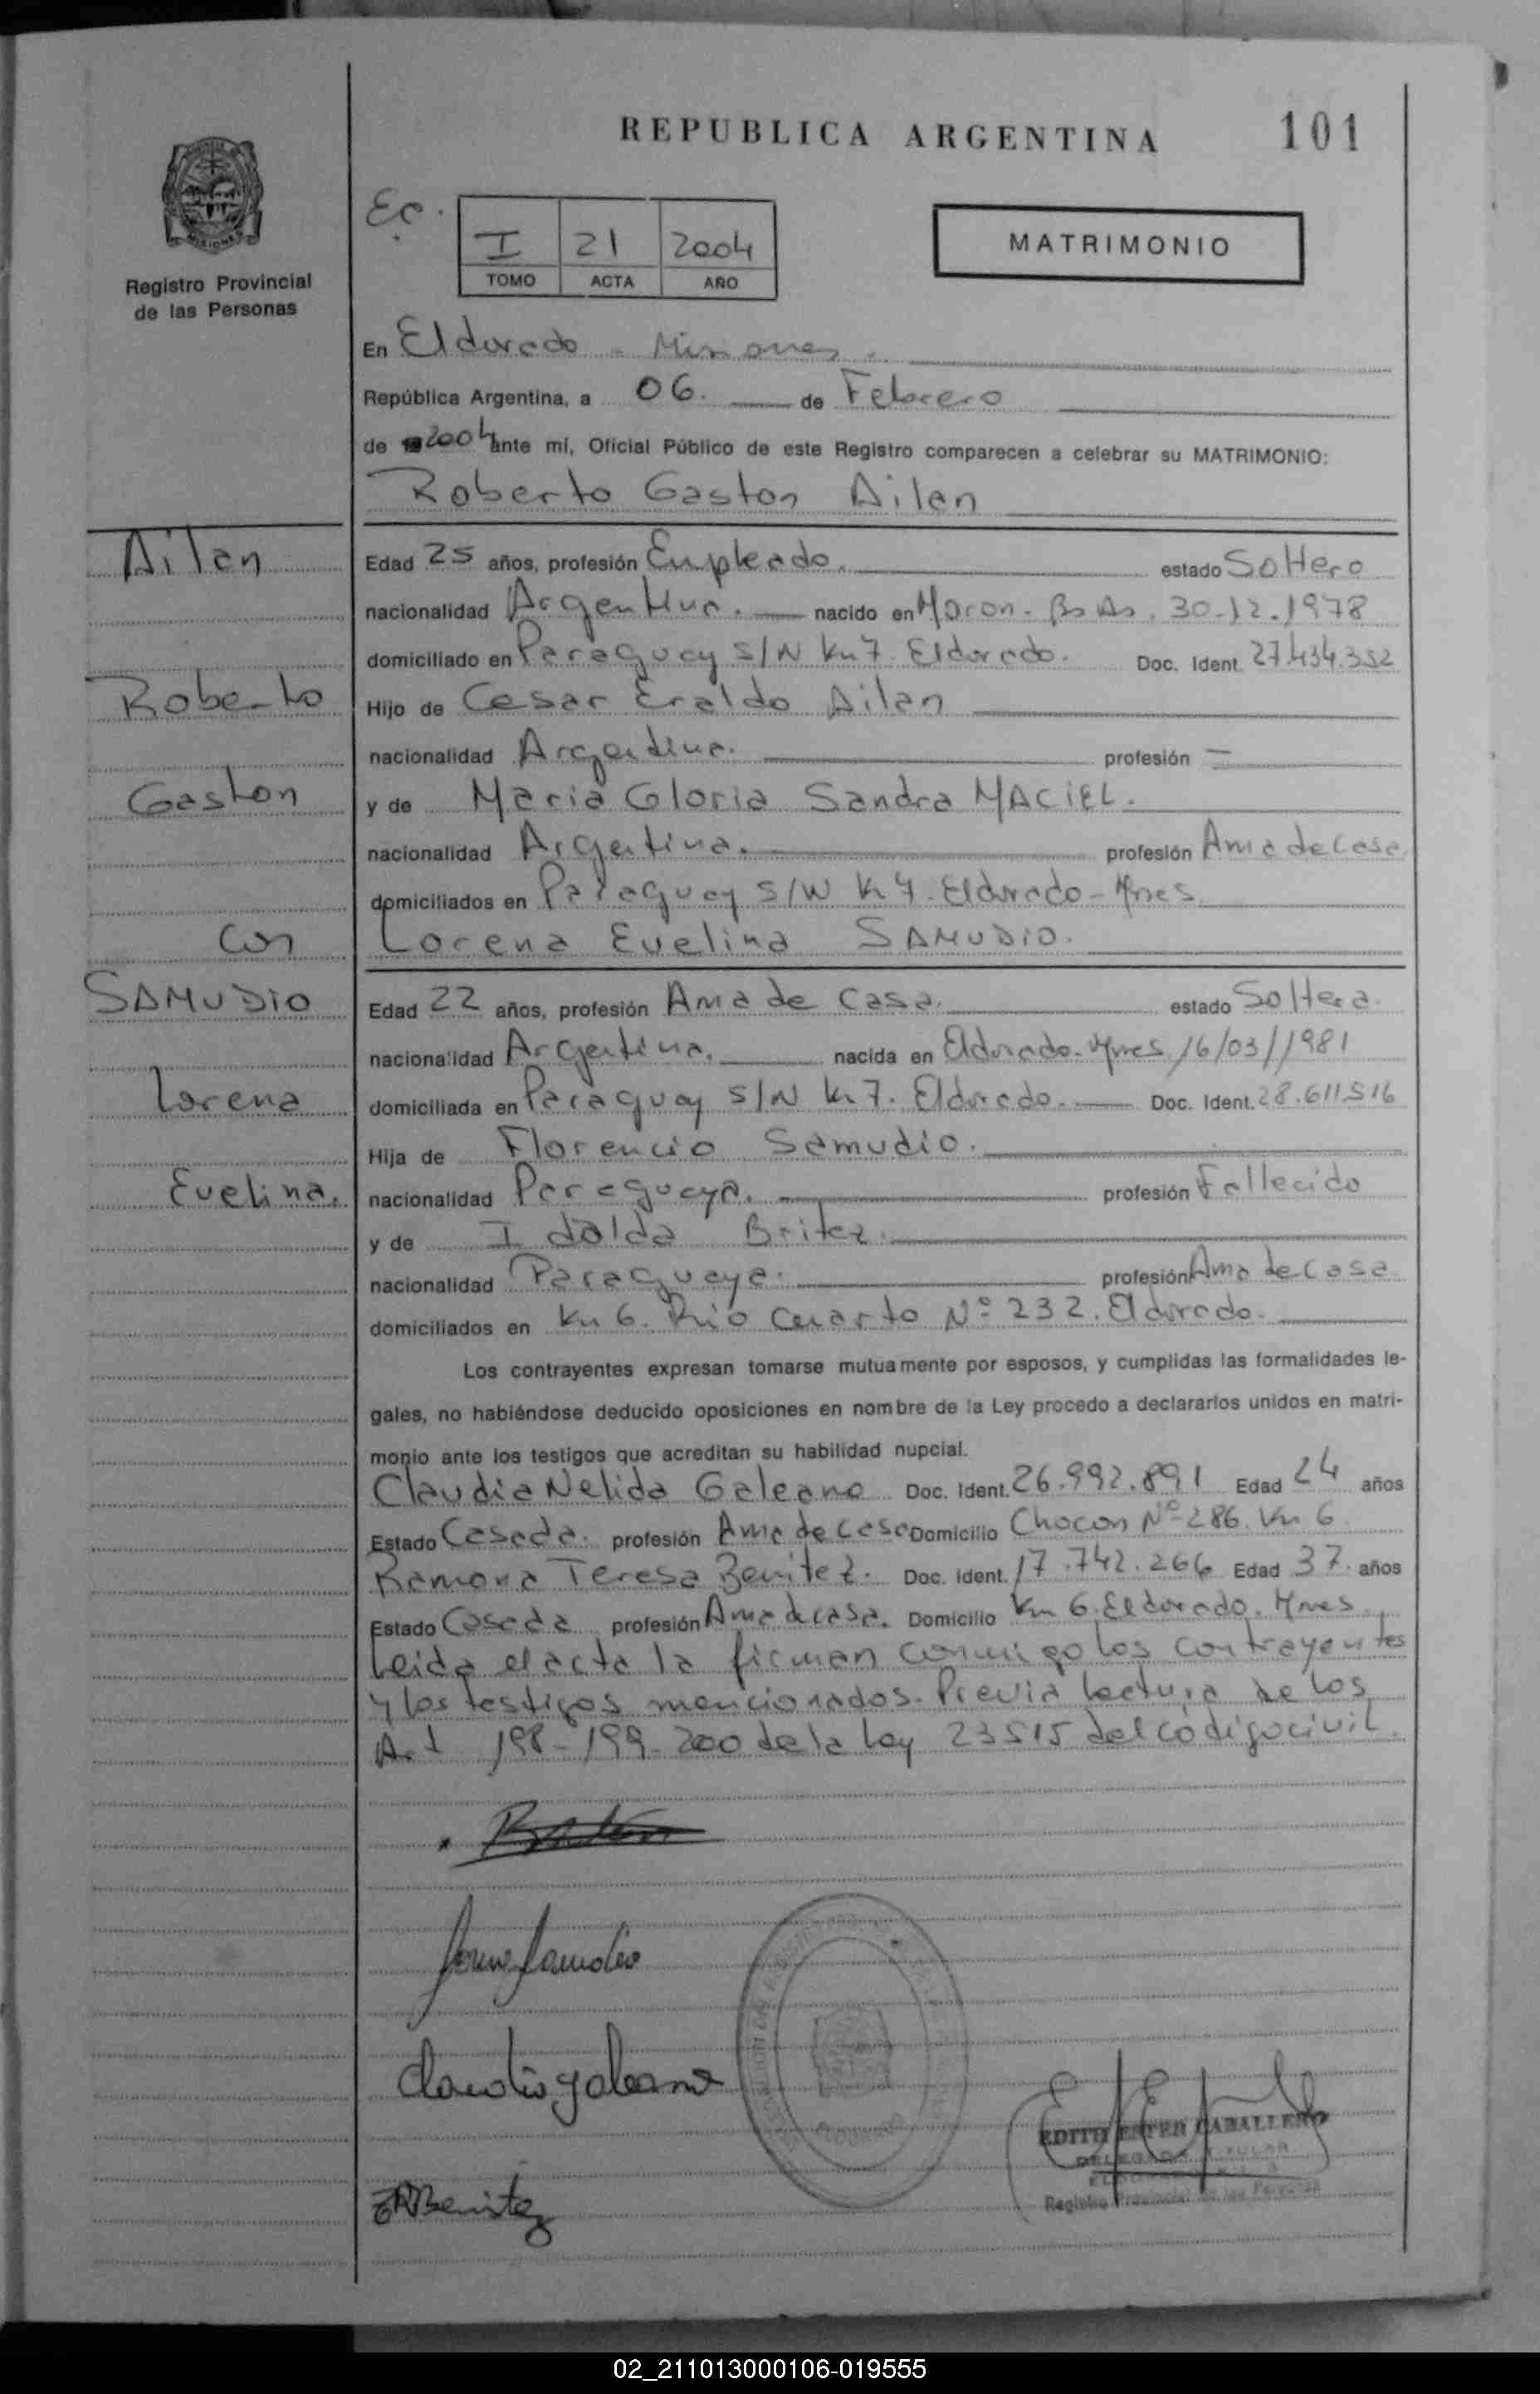 REPUBLICA ARGENTINA
101
Registro Provincial
de las Personas
I 21 2004
TOMO ACTA AÑO
MATRIMONIO
En Eldorado - Misiones.
República Argentina, a 06. de Febrero
de 2004 ante mí, Oficial Público de este Registro comparecen a celebrar su MATRIMONIO:
Roberto Gaston Ailan
Ailan
Roberto
Gaston
con
SAMUDIO
Lorena
Evelina.
Edad 25 años, profesión Empleado. estado Soltero
nacionalidad Argentina. nacido en Moron - Bs As. 30-12-1978
domiciliado en Paraguay S/N Km 7. Eldorado. Doc. Ident. 27.434.352
Hijo de Cesar Eraldo Ailan
nacionalidad Argentina. profesión —
y de Maria Gloria Sandra MACIEL.
nacionalidad Argentina. profesión Ama de Casa.
domiciliados en Paraguay S/N Eldorado - Mnes
Lorena Evelina SAMUDIO.
Edad 22 años, profesión Ama de Casa. estado Soltera.
nacionalidad Argentina. nacida en Eldorado - Mnes 16/03/1981
domiciliada en Paraguay S/N Km 7. Eldorado. Doc. Ident. 28.611.516
Hija de Florencio Samudio.
nacionalidad Paraguaya. profesión Fallecido
y de Idalda Britez.
nacionalidad Paraguaya. profesión Ama de Casa
domiciliados en Km 6. Rio Cuarto Nº 232. Eldorado.
Los contrayentes expresan tomarse mutuamente por esposos, y cumplidas las formalidades le-
gales, no habiéndose deducido oposiciones en nombre de la Ley procedo a declararlos unidos en matri-
monio ante los testigos que acreditan su habilidad nupcial.
Claudia Nelida Galeano Doc. Ident. 26.992.891 Edad 24 años
Estado Casada. profesión Ama de Casa Domicilio Chocon Nº 286. Km 6
Ramona Teresa Benitez. Doc. Ident. 17.742.266 Edad 37. años
Estado Casada profesión Ama de casa. Domicilio Km 6. Eldorado. Mnes
Leida el acta la firman conmigo los contrayentes
y los testigos mencionados. Previa lectura de los
Art 198-199-200 de la Ley 23515 del código civil.
Claudia galeano
Benitez
ELDORADO
EDITH ESTER CABALLERO
DELEGADA TITULAR
Registro Provincial de las Personas
02_211013000106-019555